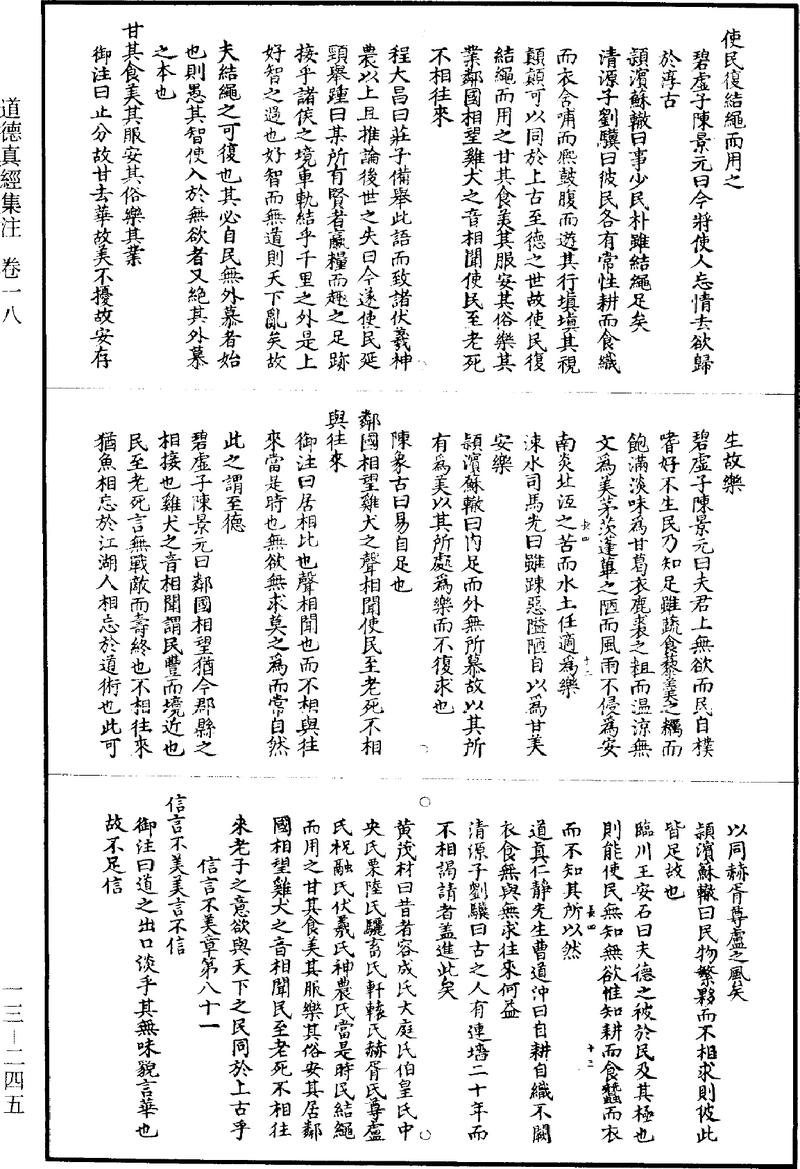 使民復結繩而用之
碧虛子陳景元曰今將使人忘情去欲歸
於淳古
潁濱蘇轍曰事少民朴雖結繩足矣
清源子劉驥曰彼民各有常性耕而食織
而衣含哺而熈鼓腹而遊其行塡塡其視
顛顛可以同於上古至德之世故使民復
結繩而用之甘其食美其服安其俗樂其
業鄰國相望雞犬之音相聞使民至老死
不相往來
程大昌曰莊子備舉此語而致諸伏羲神
農以上且推論後世之失曰今遂使民延
頸舉踵曰某所有賢者贏糧而趣之足跡
接乎諸侯之境車軌結乎千里之外是上
好智之過也好智而無道則天下亂矣故
夫結繩之可復也其必自民無外慕者始
也則愚其智使入於無欲者又絶其外慕
之本也
甘其食美其服安其俗樂其業
御注曰止分故甘去華故美不擾故安存
生故樂
碧虛子陳景元曰夫君上無欲而民自樸
嗜好不生民乃知足雖蔬食藜羹之糲而
飽滿淡味為甘葛衣鹿裘之粗而温涼無
文為美茅茨蓬蓽之陋而風雨不侵為安
南炎北沍之苦而水土任適為樂
涑水司馬光曰雖疎惡隘陋自以為甘美
安樂
潁濱蘇轍曰内足而外無所慕故以其所
有為美以其所處為樂而不復求也
陳象古曰易自足也
鄰國相望雞犬之聲相聞使民至老死不相
與往來
御注曰居相比也聲相聞也而不相與往
來當是時也無欲無求莫之為而常自然
此之謂至德
碧虛子陳景元曰鄰國相望猶今郡縣之
相接也雞犬之音相聞謂民豐而境近也
民至老死言無戰敵而壽終也不相往來
猶魚相忘於江湖人相忘於道術也此可
以同赫胥尊盧之風矣
潁濱蘇轍曰民物繁夥而不相求則彼此
皆足故也
臨川王安石曰夫德之被於民及其極也
則能使民無知無欲惟知耕而食蠶而衣
而不知其所以然
道真仁靜先生曹道沖曰自耕自織不闕
衣食無與無求往來何益
清源子劉驥曰古之人有連墻二十年而
不相謁請者蓋進此矣
黄茂材曰昔者容成氏大庭氏伯皇氏中
央氏栗陸氏驪畜氏軒轅氏赫胥氏尊盧
氏祝融氏伏羲氏神農氏當是時民結繩
而用之甘其食美其服樂其俗安其居鄰
國相望雞犬之音相聞民至老死不相往
來老子之意欲與天下之民同於上古乎
信言不美章第八十一
信言不美美言不信
御注曰道之出口淡乎其無味貌言華也
故不足信
道德真經集注 卷一八
一三—二四五